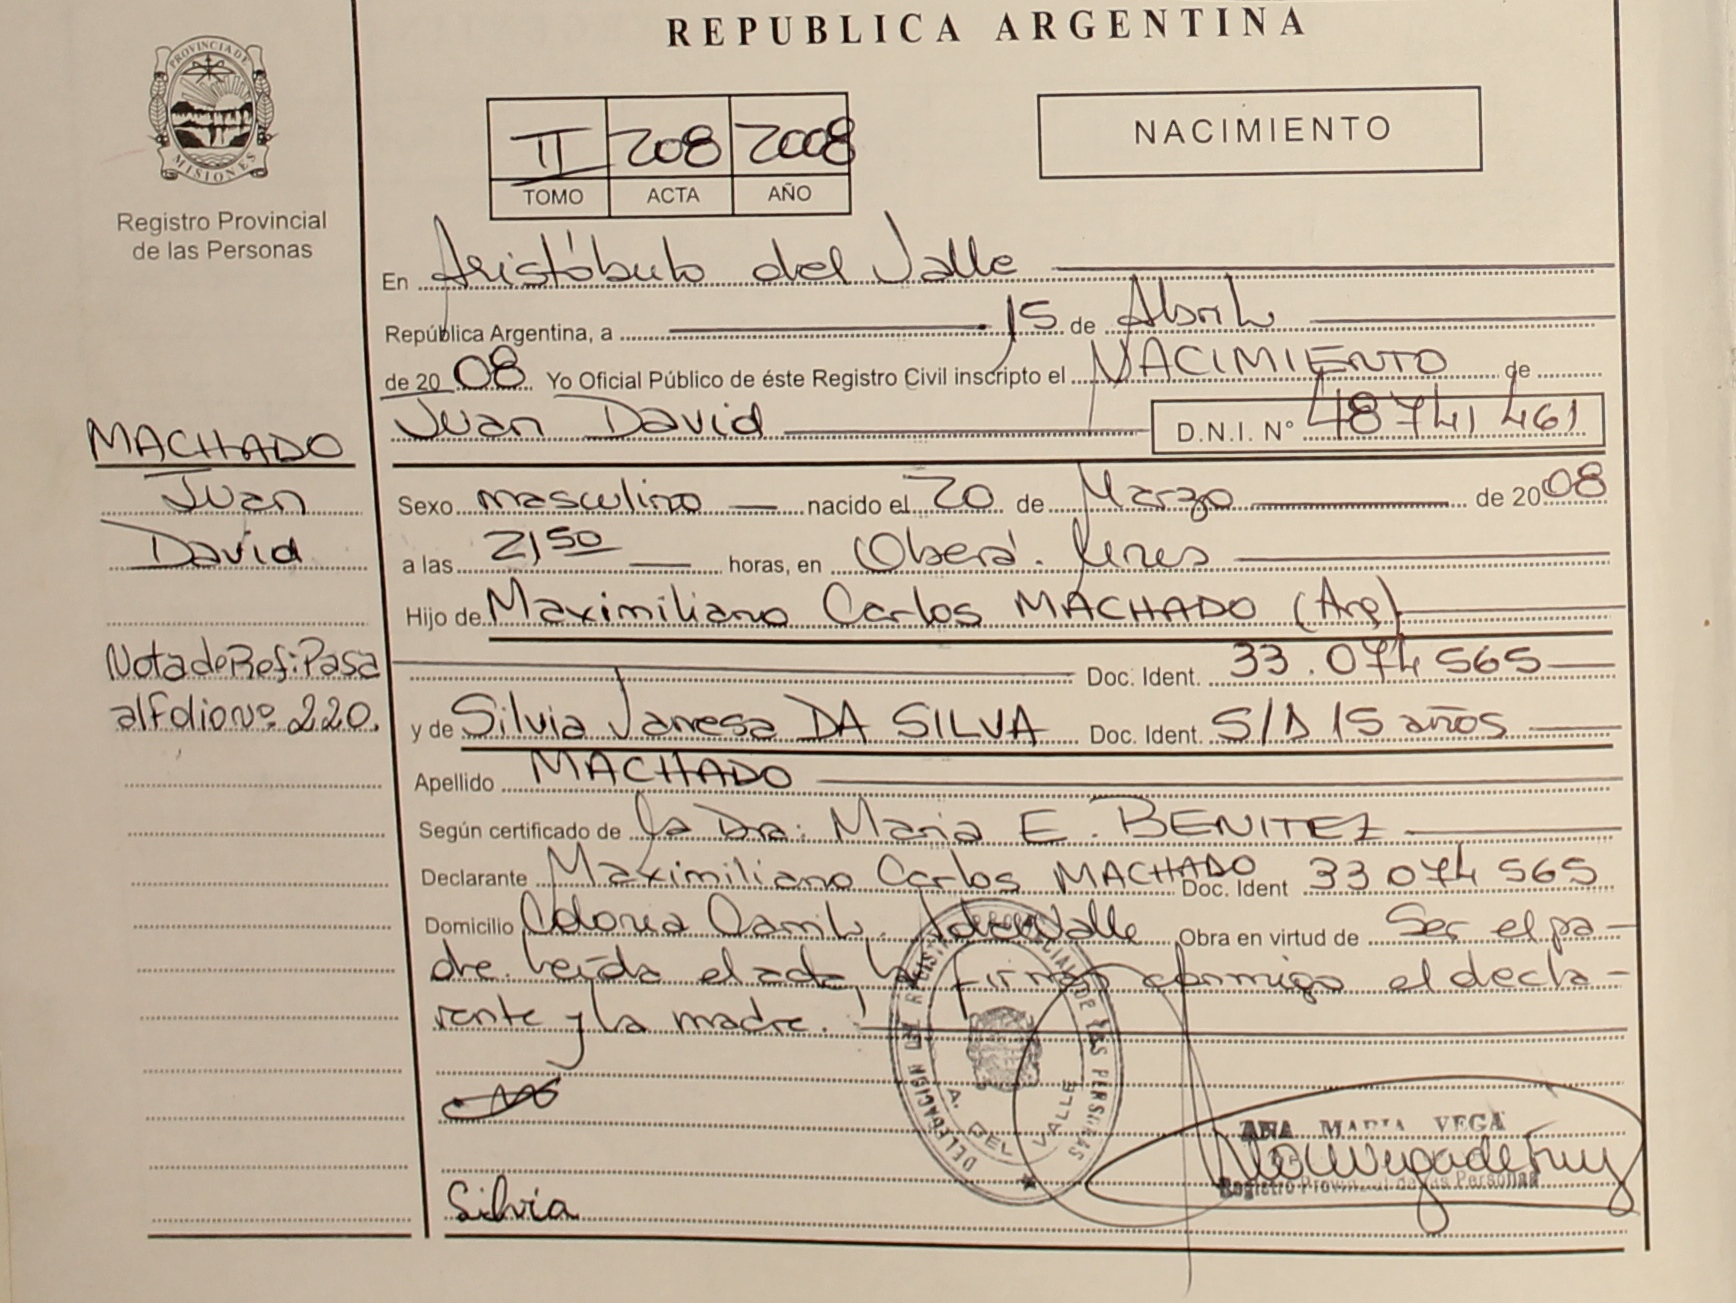 REPUBLICA ARGENTINA
PROVINCIA DE
MISIONES
Registro Provincial
de las Personas
II 208 2008
TOMO ACTA AÑO
NACIMIENTO
En Aristóbulo del Valle
República Argentina, a 15 de Abril
de 2008 Yo Oficial Público de éste Registro Civil inscripto el NACIMIENTO de
Juan David D.N.I. Nº 48741461
MACHADO
Juan
David
Sexo masculino nacido el 20 de Marzo de 2008
a las 2150 horas, en Oberá. Mnes
Hijo de Maximiliano Carlos MACHADO (Arg)
Doc. Ident. 33.074565
y de Silvia Vanesa DA SILVA Doc. Ident. S/D 15 años
Nota de Ref: Pasa
al Folio Nº 220.
Apellido MACHADO
Según certificado de la Dra: Maria E. BENITEZ
Declarante Maximiliano Carlos MACHADO Doc. Ident 33074565
Domicilio Colonia Obra en virtud de Ser el pa-
dre. Leída el acta, la firman conmigo el decla-
rante y la madre.
DELEGACIÓN DEL REGISTRO PROVINCIAL DE LAS PERSONAS
A. DEL VALLE
ANA MARIA VEGA
Registro Provincial de las Personas
Silvia